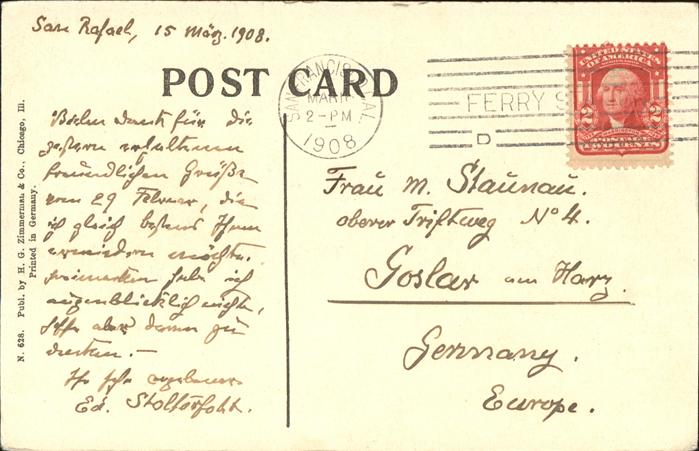 San Rafael, 15 März 1908.
POST CARD
SAN FRANCISCO, CAL.
MAR 17
2-PM
1908
FERRY S
D
UNITED STATES
OF AMERICA
2 2
POSTAGE
TWO CENTS
Vielen Dank für die
gestern erhaltenen
freundlichen Grüße
vom 29 Februar, die
ich gleich bestens Ihnen
erwiedern möchte.
habe ich
augenblicklich nicht,
hoffe aber daran zu
denken.—
Ihr sehr ergebener
Ed. Stolterfoht.
Frau M. Staunau.
oberer Triftweg No 4.
Goslar am Harz.
Germany.
Europe.
N. 628. Publ. by H. G. Zimmerman & Co., Chicago, Ill.
Printed in Germany.